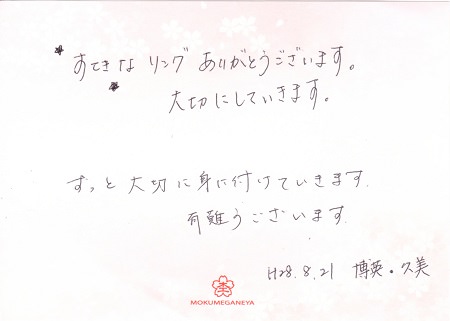 すてきな リング ありがとうございます。
大切にしていきます。
ずっと大切に身に付けていきます.
有難うございます.
H28.8.21 博英・久美
MOKUMEGANEYA